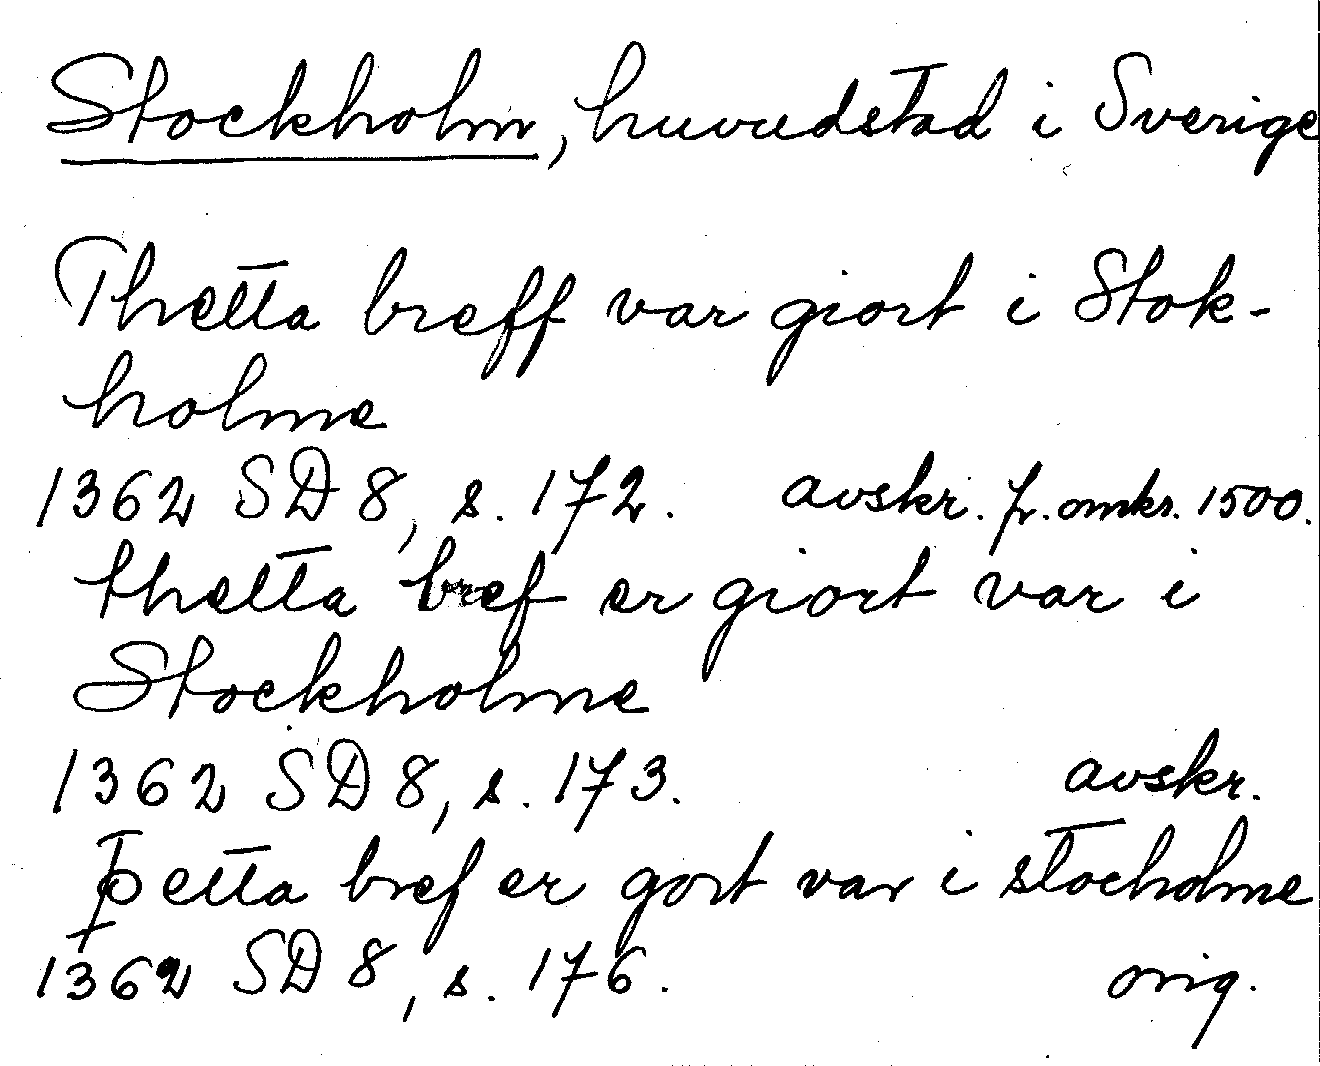 Stockholm, huvudstad i Sverige
Thetta breff var giort i Stok-
holme
1362 SD 8, s. 172. avskr. fr. omkr. 1500.
thetta bref er giort var i
Stockholme
1362 SD 8, s. 173. avskr.
þetta bref er gort var i stocholme
1362 SD 8, s. 176. orig.